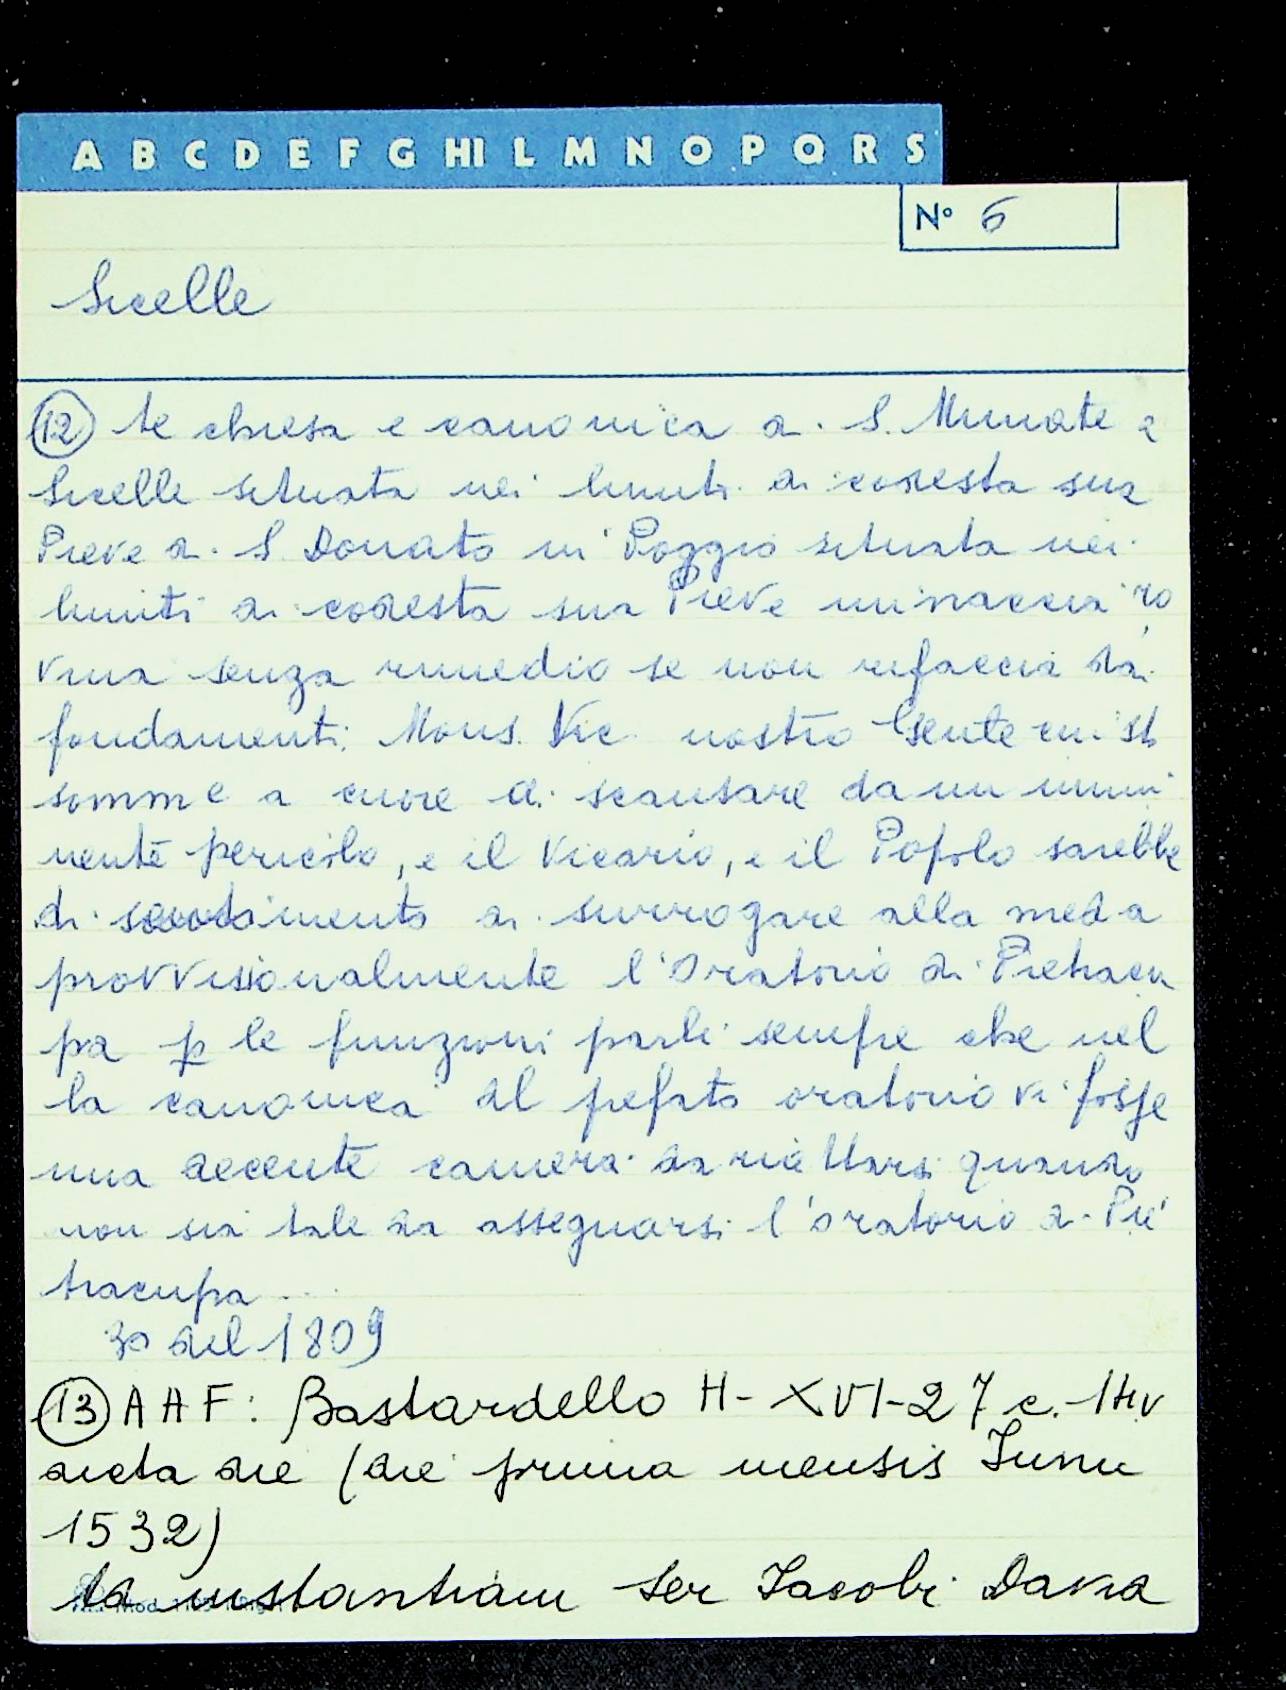 A B C D E F G HI L M N O P Q R S
N° 6
Sicelle
12 te chiesa e canonica di S. Miniato a
Sicelle situata nei limiti di codesta sua
Pieve di S. Donato in Poggio situata nei
limiti di codesta sua Pieve minaccia ro
vina senza rimedio se non rifaccia dai
fondamenti. Mons. Vic nostro
somme a cuore di scansare da un immi
nente pericolo, e il Vicario, e il Popolo sarebbe
di di surrogare alla meda
provvisionalmente l'Oratorio di Pietracu
pa p le funzioni parli sempre che nel
la canonica del prefato oratorio vi fosse
una decente camera da quando
non sia tale da assegnarsi l'oratorio di Pie
tracupa ...
30 del 1809
13 AAF: Bastardello H-XVI-27 c.
dicta die (die prima mensis Junii
1532)
instantiam Ser Jacobi